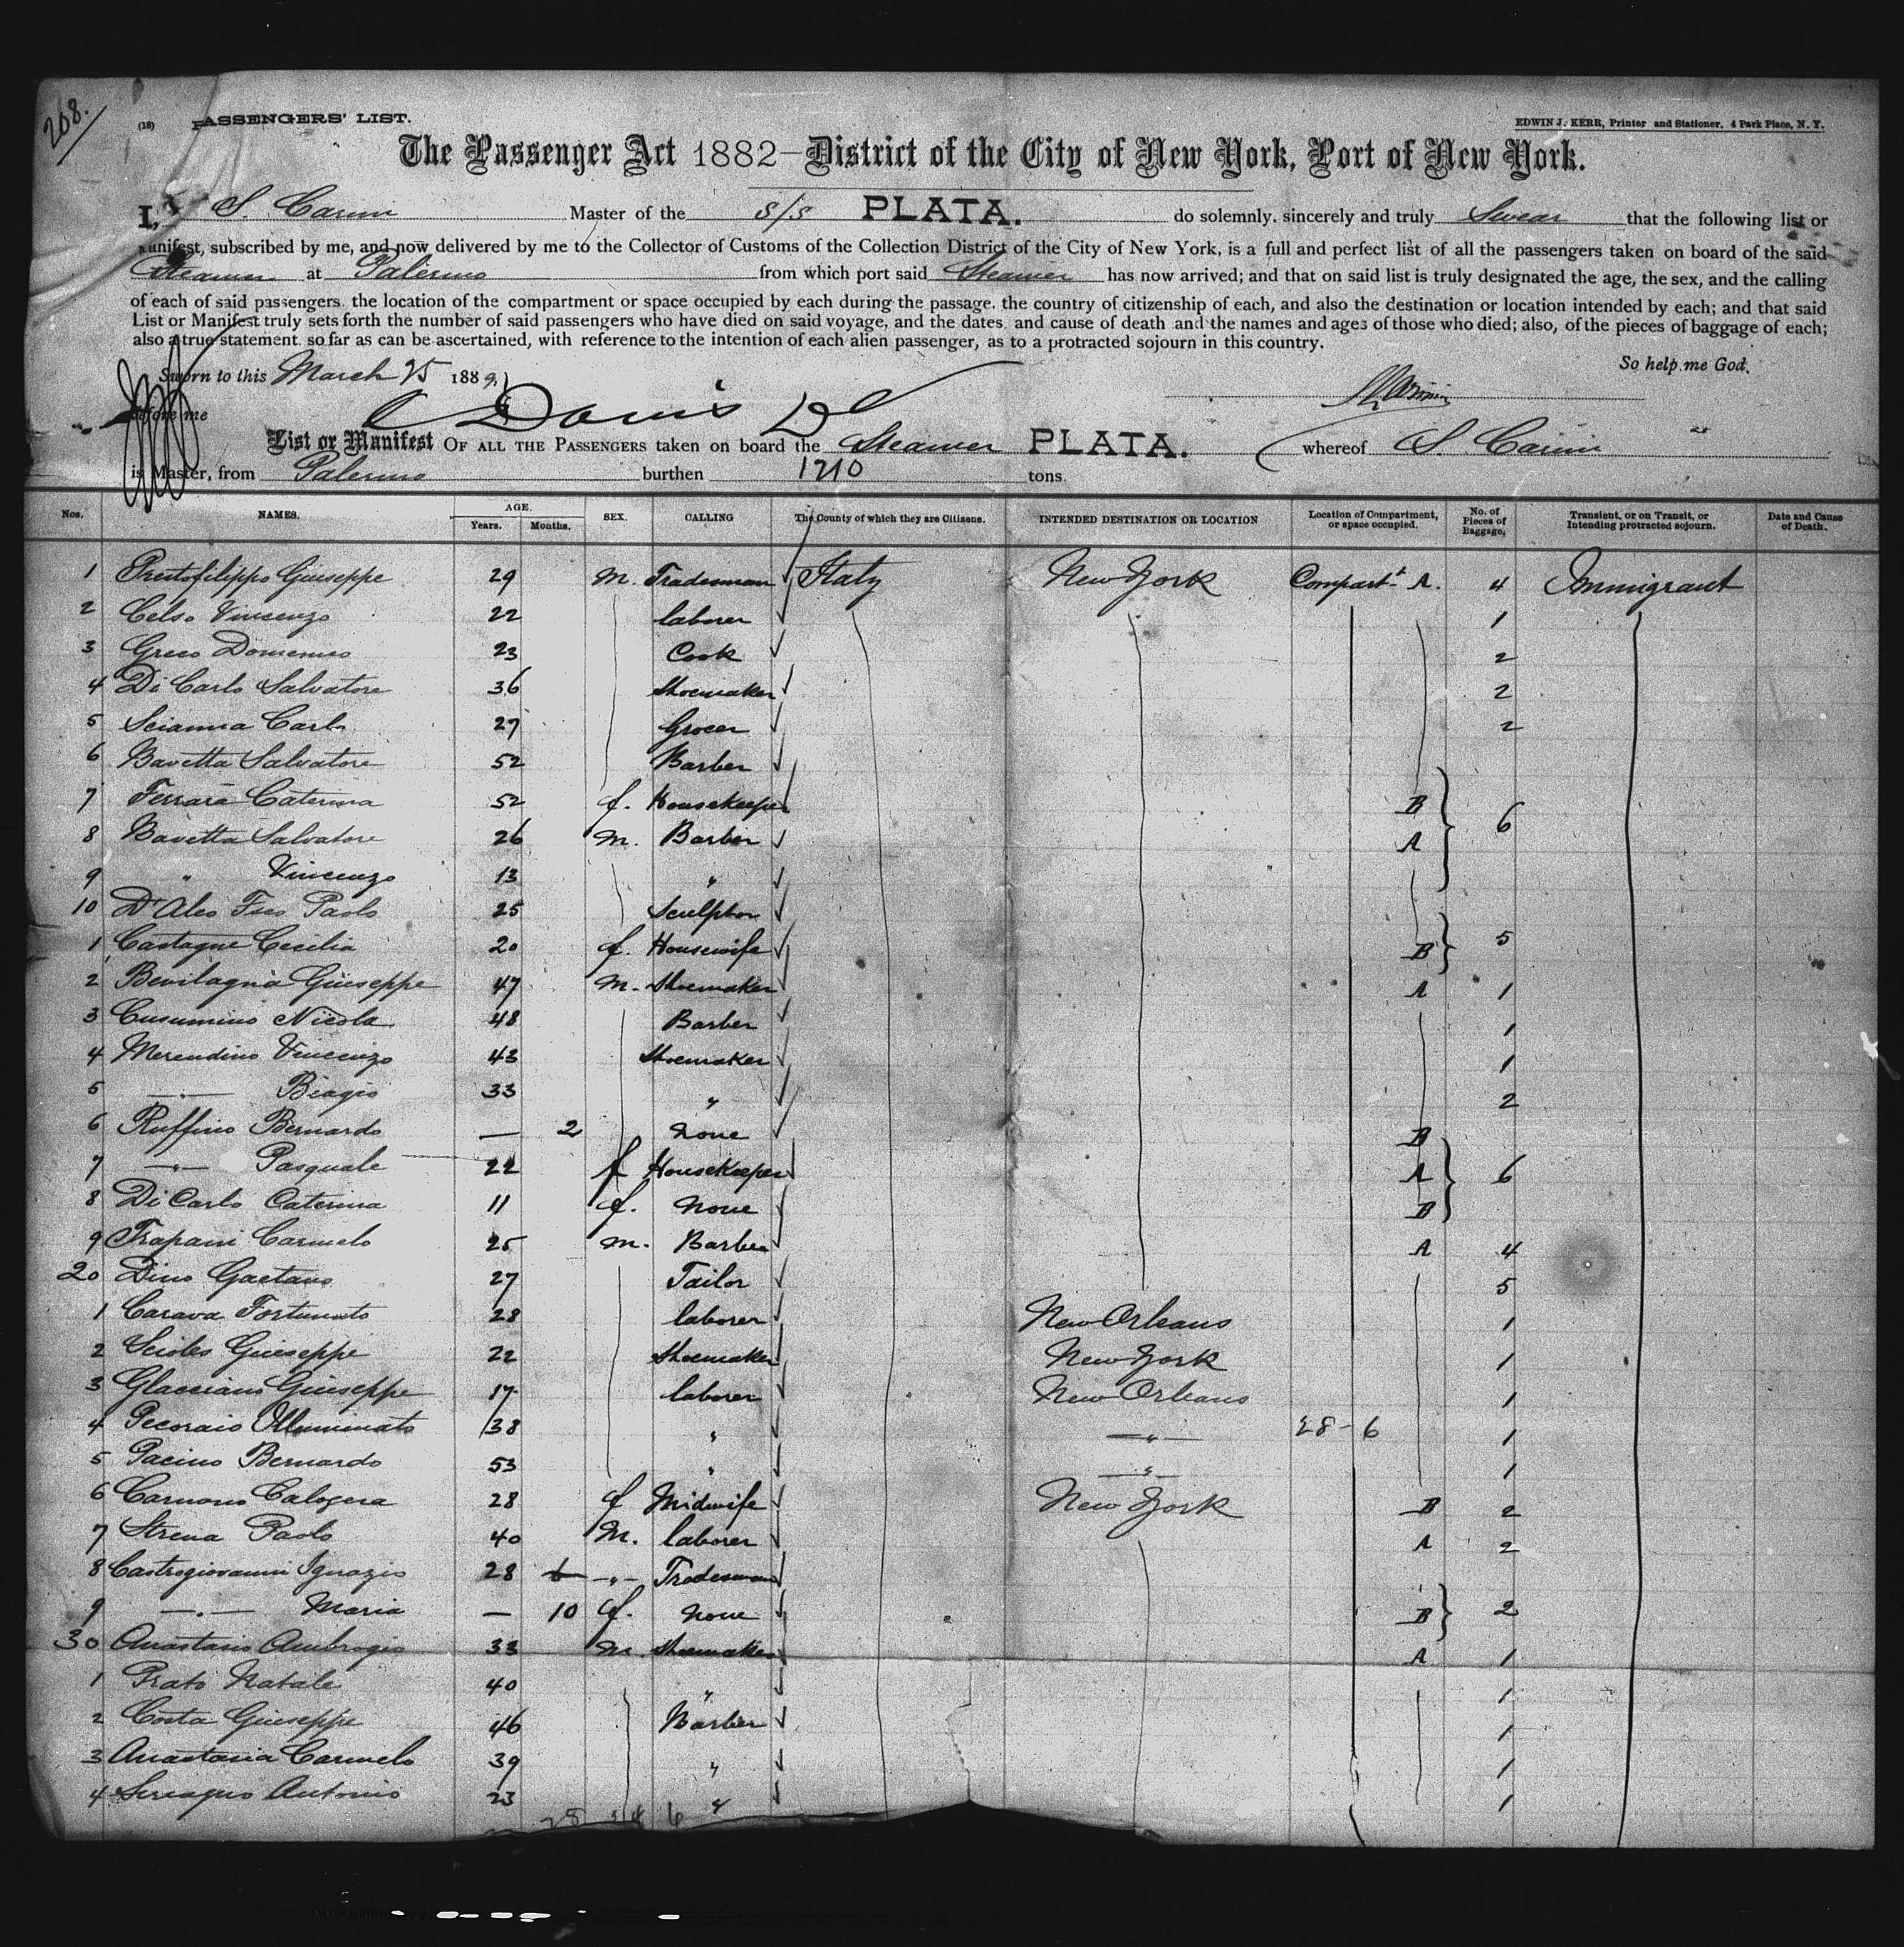 268.
(18) PASSENGERS' LIST.
EDWIN J. KERR, Printer and Stationer, 4 Park Place, N. Y.
The Passenger Act 1882—District of the City of New York, Port of New York.
I, S. Carini Master of the s/s PLATA. do solemnly, sincerely and truly Swear that the following list or
manifest, subscribed by me, and now delivered by me to the Collector of Customs of the Collection District of the City of New York, is a full and perfect list of all the passengers taken on board of the said
Steamer at Palermo from which port said Steamer has now arrived; and that on said list is truly designated the age, the sex, and the calling
of each of said passengers. the location of the compartment or space occupied by each during the passage. the country of citizenship of each, and also the destination or location intended by each; and that said
List or Manifest truly sets forth the number of said passengers who have died on said voyage, and the dates and cause of death and the names and ages of those who died; also, of the pieces of baggage of each;
also a true statement. so far as can be ascertained, with reference to the intention of each alien passenger, as to a protracted sojourn in this country.
So help me God.
Sworn to this March 25 1889
before me
List or Manifest OF ALL THE PASSENGERS taken on board the Steamer PLATA. whereof S. Carini
is Master, from Palermo burthen 1210 tons.
Nos. NAMES. AGE. Years. Months. SEX. CALLING The County of which they are Citizens. INTENDED DESTINATION OR LOCATION Location of Compartment, or space occupied. No. of Pieces of Baggage. Transient, or on Transit, or Intending protracted sojourn. Date and Cause of Death.
1 Prestofilippo Giuseppe 29 M. Tradesman Italy New York Compart.t A. 4 Immigrant
2 Celso Vincenzo 22 laborer 1
3 Greco Domenico 23 Cook 2
4 Di Carlo Salvatore 36 Shoemaker 2
5 Scianna Carlo 27 Grocer 2
6 Bavetta Salvatore 52 Barber
7 Ferrara Caterina 52 f. Housekeeper B 6
8 Bavetta Salvatore 26 M. Barber A
9 " Vincenzo 13 "
10 D'Aleo Fsco Paolo 25 Sculptor
1 Castagne Cecilia 20 f. Housewife B 5
2 Bevilagna Giuseppe 47 M. Shoemaker A 1
3 Cusumino Nicola 48 Barber 1
4 Merendino Vincenzo 43 Shoemaker 1
5 —"— Biagio 33 " 2
6 Ruffino Bernardo — 2 none B
7 —"— Pasquale 22 f Housekeeper A 6
8 Di Carlo Caterina 11 f. none B
9 Trapani Carmelo 25 M. Barber A 4
20 Dino Gaetano 27 Tailor 5
1 Carava Fortunato 28 laborer New Orleans 1
2 Sciolis Giuseppe 22 Shoemaker New York 1
3 Glacciano Giuseppe 17 laborer New Orleans 1
4 Pecoraio Illuminato 38 " —"— 28-6 1
5 Pacino Bernardo 53 " —"— 1
6 Carnono Calogera 28 f Midwife New York B 2
7 Strena Paolo 40 M. laborer A 2
8 Castrogiovanni Ignazio 28 6 —"— Tradesman
9 —"— Maria — 10 f. none B 2
30 Anastasio Ambrogio 33 M. Shoemaker A 1
1 Prato Natale 40 " 1
2 Costa Giuseppe 46 Barber 1
3 Anastasia Carmelo 39 " 1
4 Sereagno Antonio 23 " 1